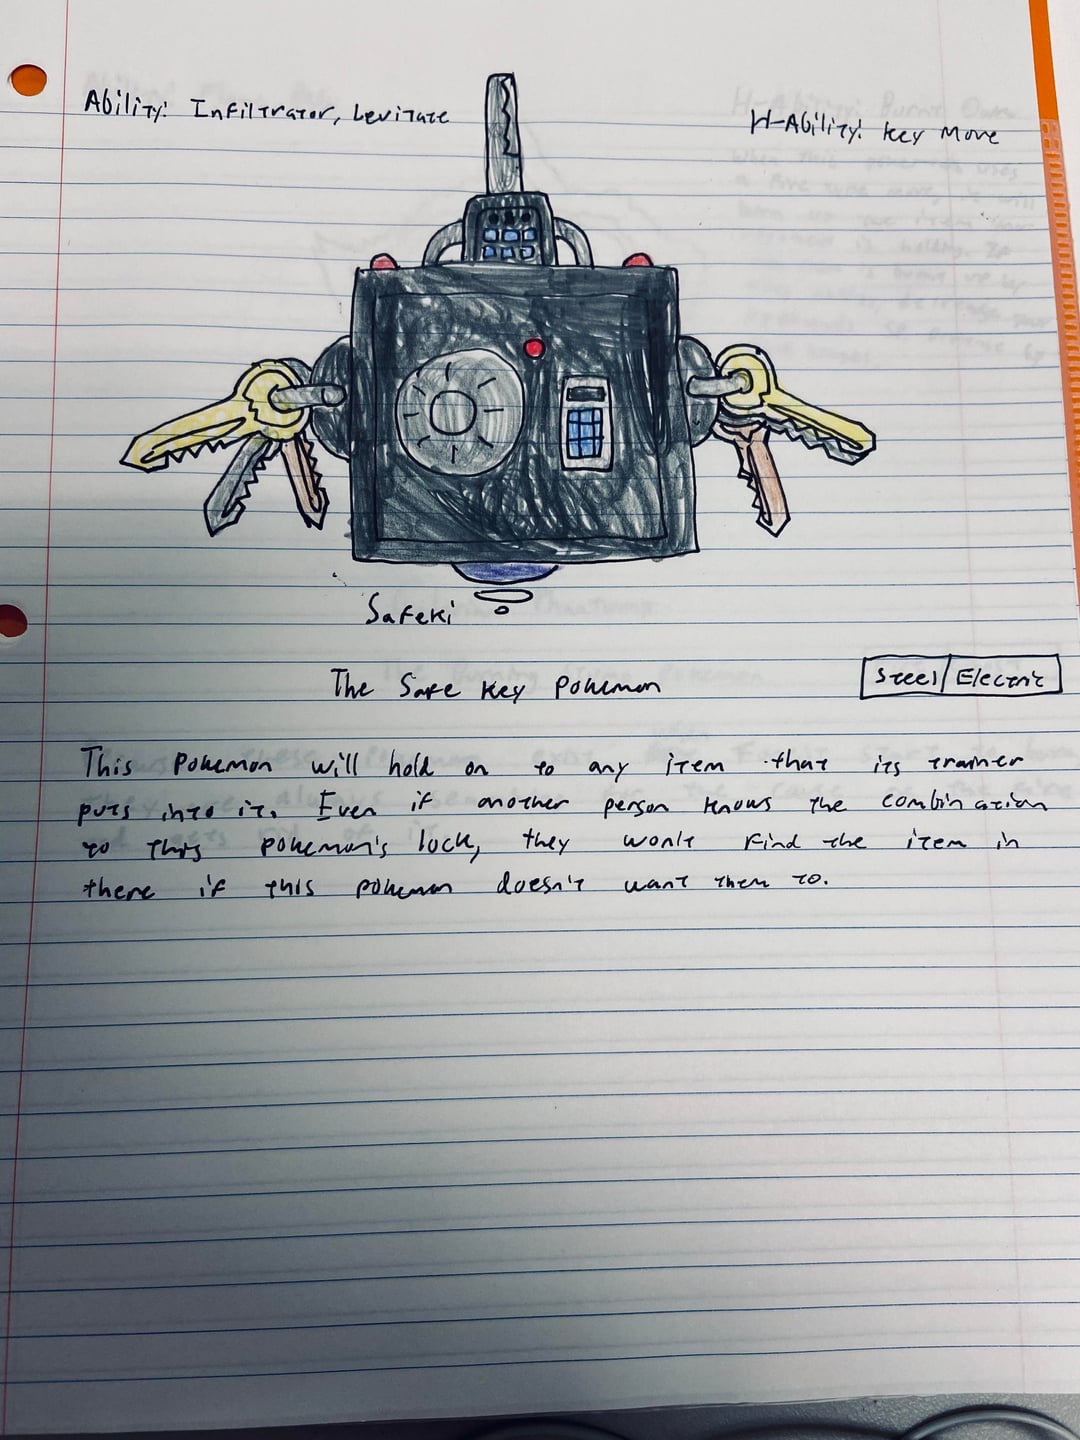 Ability: Infiltrator, Levitate
H-Ability: Key Move
Safeki
The Safe Key Pokemon
Steel/Electric
This Pokemon will hold on to any item that its trainer
puts into it. Even if another person knows the combination
to this pokemon's lock, they won't find the item in
there if this pokemon doesn't want them to.